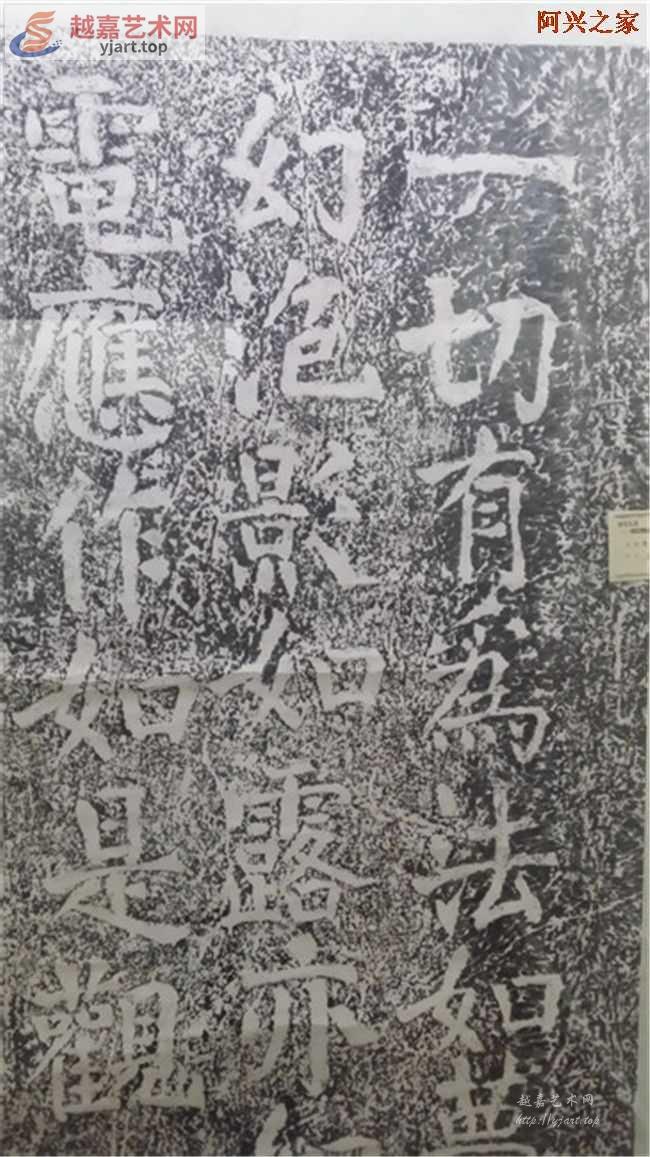 越嘉艺术网
yjart.top
阿兴之家
一切有為法如夢
幻泡影如露亦
電應作如是觀
越嘉艺术网
http://yjart.top